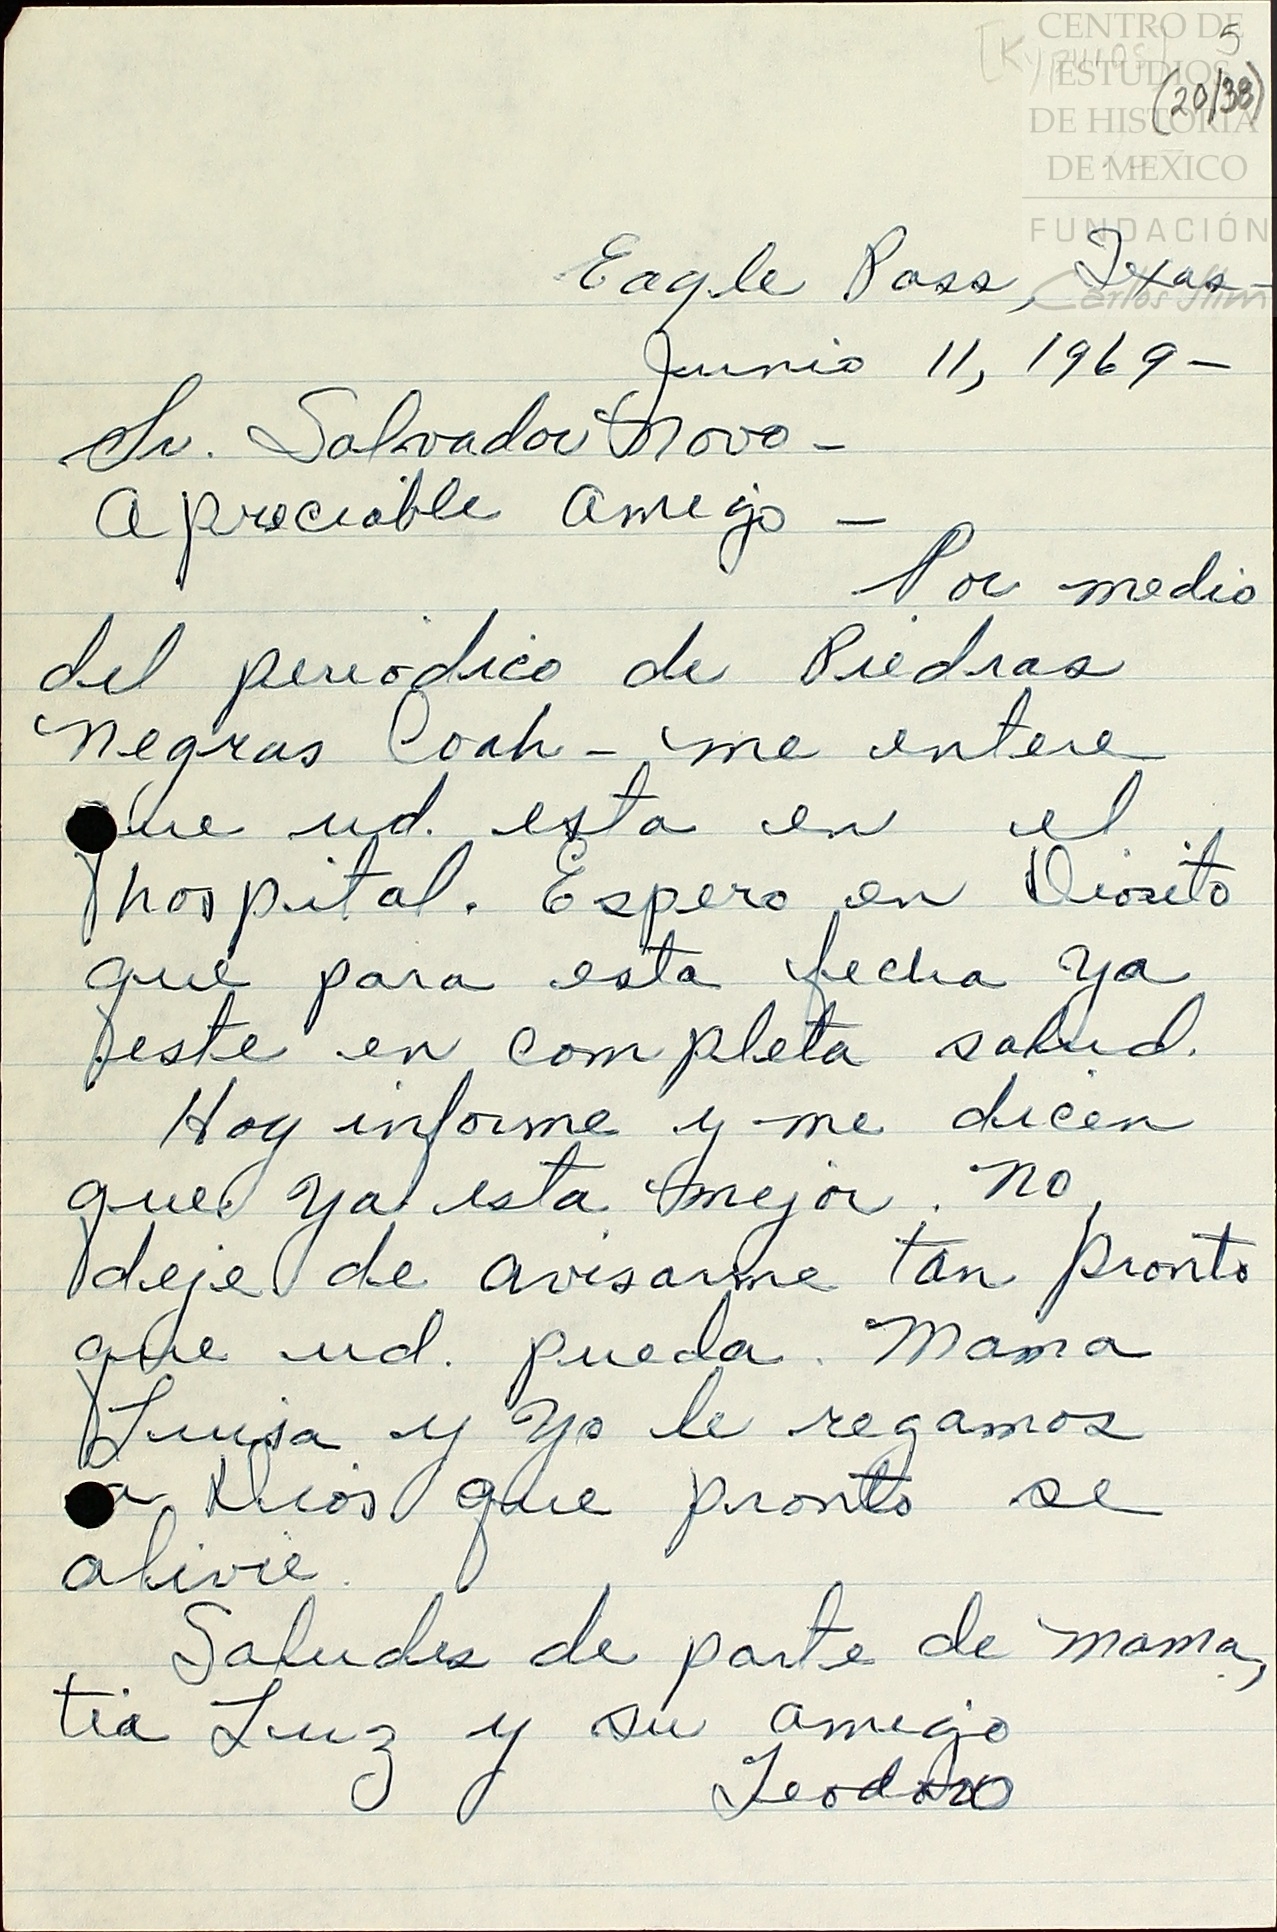 CENTRO DE
ESTUDIOS
DE HISTORIA
DE MEXICO
FUNDACIÓN
Carlos Slim
5
(20/38)
Eagle Pass, Texas -
Junio 11, 1969 -
Sr. Salvador Novo -
Apreciable Amigo -
Por medio
del periódico de Piedras
Negras Coah - me entere
que ud. esta en el
hospital. Espero en Diosito
que para esta fecha ya
este en completa salud.
Hoy informe y me dicen
que ya esta mejor. No
deje de avisarme tan pronto
que ud. pueda. Mama
Luisa y Yo le regamos
a Dios que pronto se
alivie.
Saludes de parte de mama,
tia Luz y su amigo
Teodoro